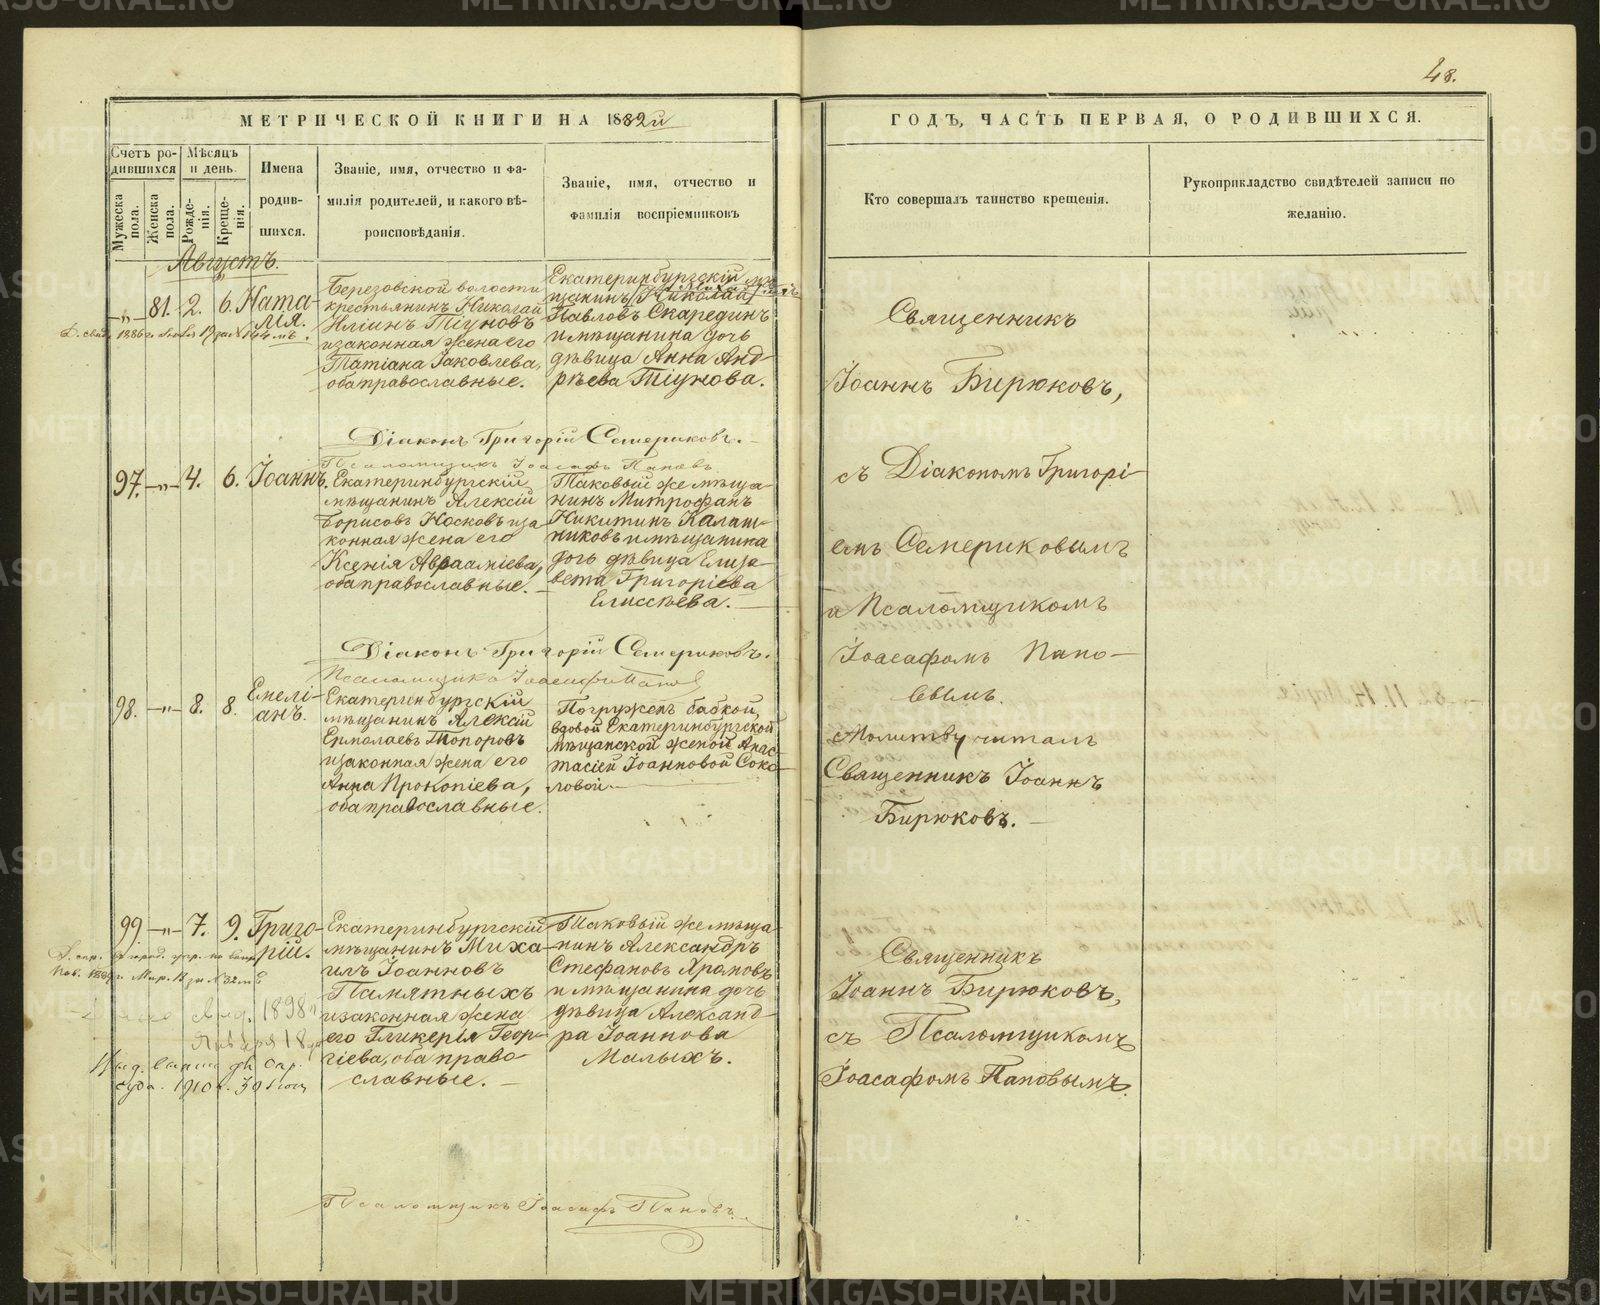 48.
МЕТРИЧЕСКОЙ КНИГИ НА 1882й
ГОДЪ, ЧАСТЬ ПЕРВАЯ, О РОДИВШИХСЯ.
Счетъ ро-
дившихся
Мужеска
пола.
Женска
пола.
Мѣсяцъ
и день.
Рожде-
нія.
Креще-
нія.
Имена
родив-
шихся.
Званіе, имя, отчество и фа-
милія родителей, и какого вѣ-
роисповѣданія.
Званіе, имя, отчество и
фамилія воспріемниковъ
Кто совершалъ таинство крещенія.
Рукоприкладство свидѣтелей записи по
желанію.
Августъ.
81. 2. 6. Ната-
лія.
Березовской волости
крестьянинъ Николай
Иліинъ Тіуновъ
и законная жена его
Татіана Іаковлева,
оба православные.
Екатеринбургскій мѣ-
щанинъ Николай
Павловъ Скарединъ
и мѣщанина дочь
дѣвица Анна Анд-
рѣева Тіунова.
Священникъ
Іоаннъ Бирюковъ,
съ Діакономъ Григорі-
емъ Семериковымъ
и Псаломщикомъ
Іоасафомъ Папо-
вымъ.
Діаконъ Григорій Семериковъ.
Псаломщикъ Іоасафъ Паповъ
97. 4. 6. Іоаннъ.
Екатеринбургскій
мѣщанинъ Алексій
Борисовъ Носковъ и за-
конная жена его
Ксенія Авраамiева,
оба православные.
Таковый же мѣща-
нинъ Митрофанъ
Никитинъ Калаш-
никовъ и мѣщанина
дочь дѣвица Елиза-
вета Григоріева
Елисѣева.
Діаконъ Григорій Семериковъ.
Псаломщикъ Іоасафъ Паповъ
98. 8. 8. Емелі-
анъ.
Екатеринбургскій
мѣщанинъ Алексій
Ермолаевъ Топоровъ
и законная жена его
Анна Прокопіева,
оба православные.
Погруженъ бабкой,
вдовой Екатеринбургской
мѣщанской женой Анас-
тасіей Іоанновой Соко-
ловой.
Молитву читалъ
Священникъ Іоаннъ
Бирюковъ.
99. 7. 9. Григо-
рій.
Екатеринбургскій
мѣщанинъ Миха-
илъ Іоанновъ
Памятныхъ
и законная жена
его Гликерія Геор-
гіева, оба право-
славные.
Таковый же мѣща-
нинъ Александръ
Стефановъ Храмовъ
и мѣщанина дочь
дѣвица Александ-
ра Іоаннова
Малыхъ.
Священникъ
Іоаннъ Бирюковъ,
съ Псаломщикомъ
Іоасафомъ Паповымъ.
1898
Января 18
1910
Псаломщикъ Іоасафъ Паповъ.
METRIKI.GASO-URAL.RU